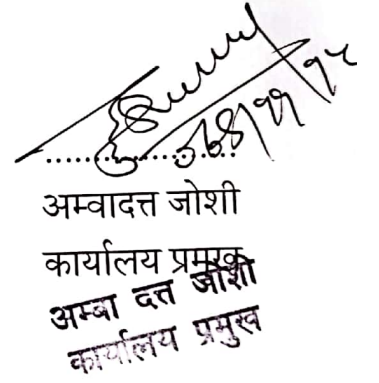 अम्वादत्त जोशी
कार्यालय प्रमुख
अम्बा दत्त जोशी
कार्यालय प्रमुख